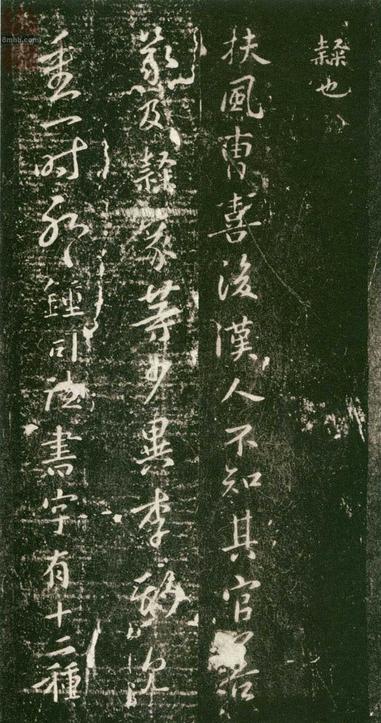 隸也
扶風曹喜後漢人不知其官善
篆及隸篆等少異李斯
重一时鍾司書字有十二種